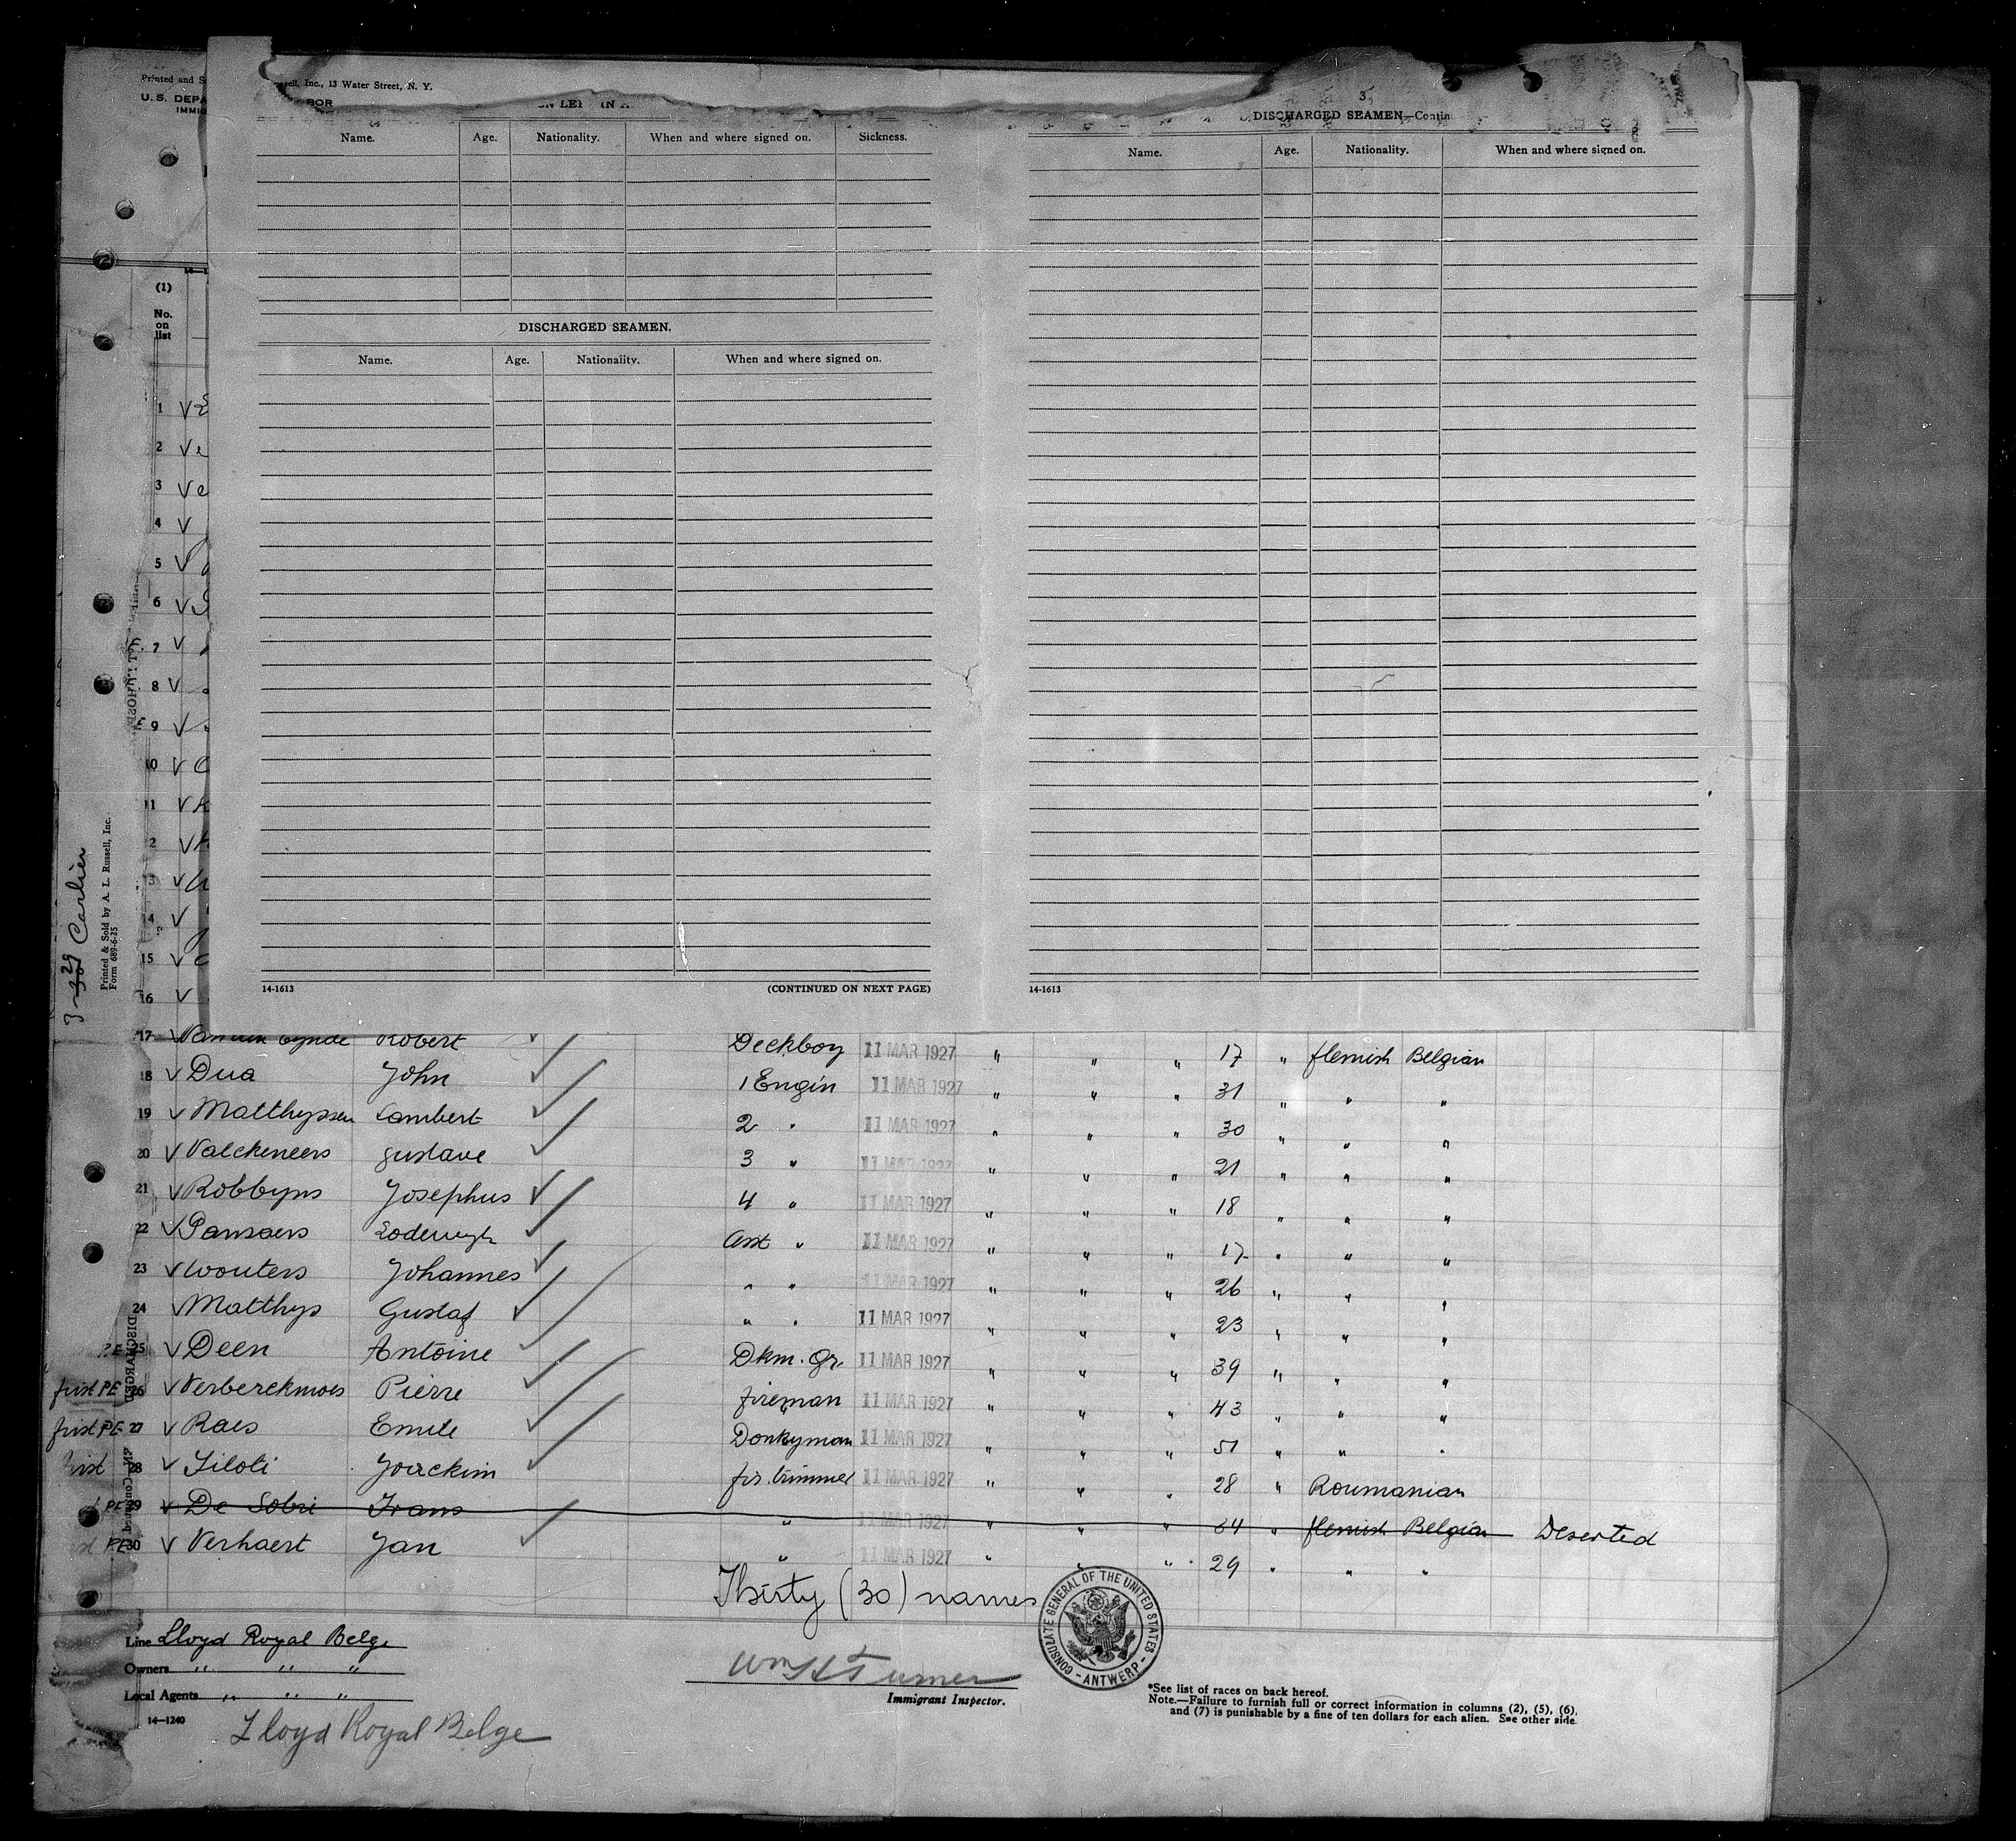 Printed and S
U. S. DEPA
IMMIG
ssell, Inc., 13 Water Street, N. Y.
BOR
3
DISCHARGED SEAMEN—Contin
Name. Age. Nationality. When and where signed on. Sickness.
Name. Age. Nationality. When and where signed on.
DISCHARGED SEAMEN.
Name. Age. Nationality. When and where signed on.
(1)
No.
on
list
1 V
2 V
3 V
4 V
5 V
6 V
7 V
8 V
9 V
10 V
11 V
2 V
13 V
14 V
15 V
16 V
Carlier
Printed & Sold by A. L. Russell, Inc.
Form 689-6-25
14-1613 (CONTINUED ON NEXT PAGE)
14-1613
17 V Robert Deckboy 11 MAR 1927 " " " 17 " flemish Belgian
18 V Dua John 1 Engin 11 MAR 1927 " " " 31 " " "
19 V Matthyssen Lambert 2 " 11 MAR 1927 " " " 30 " " "
20 V Valckeneers gustave 3 " 11 MAR 1927 " " " 21 " " "
21 V Robbyns Josephus 4 " 11 MAR 1927 " " " 18 " " "
22 V Pansaers Lodewyk Asst " 11 MAR 1927 " " " 17 " " "
23 V Wouters Johannes " " 11 MAR 1927 " " " 26 " " "
24 V Matthys Gustaf " " 11 MAR 1927 " " " 23 " " "
P.E 25 V Deen Antoine Dkm. Gr. 11 MAR 1927 " " " 39 " " "
first PE 26 V Verberckmoes Pierre fireman 11 MAR 1927 " " " 43 " " "
first PE 27 V Raes Emile Donkyman 11 MAR 1927 " " " 51 " " "
first 28 V Joackim fir. trimmer 11 MAR 1927 " " " 28 " Roumanian
PE 29 V De Frans " 11 MAR 1927 " " " 34 " flemish Belgian Deserted
PE 30 V Verhaert Jan " 11 MAR 1927 " " " 29 " " "
DISCHARGED
Thirty (30) names
CONSULATE GENERAL OF THE UNITED STATES - ANTWERP -
Line Lloyd Royal Belge
Owners " " "
Local Agents " " "
14—1240
Lloyd Royal Belge
Wm H Turner
Immigrant Inspector.
*See list of races on back hereof.
Note.—Failure to furnish full or correct information in columns (2), (5), (6),
and (7) is punishable by a fine of ten dollars for each alien. See other side.